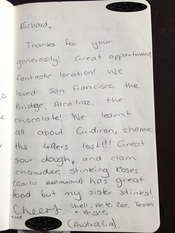 Richard,
Thanks for your
generosity! Great appartment
fantastic location! We
loved San Francisco, the
Bridge, Alcatraz, the
chocolate! We learnt
all about Gridiron, shame
the 49ers lost!!! Great
sour dough, and clam
chowder. Stinking Roses
(Garlic Restaurant) has great
food but my sister stinks!
Cheers Shell, Pete, Zoe, Tessa
(Australia).